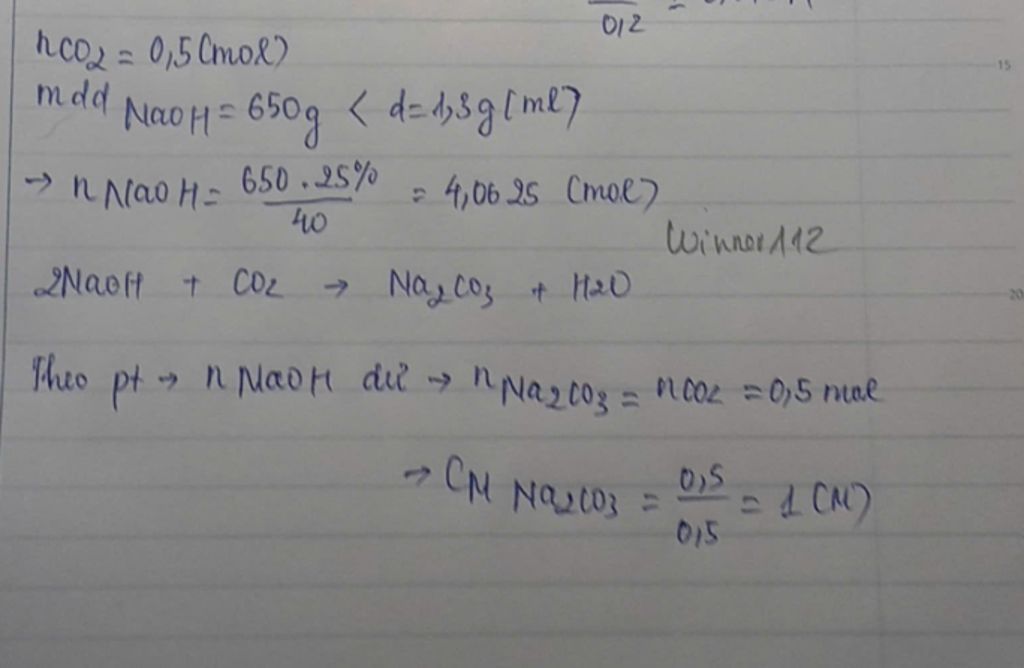 0,2
nCO2 = 0,5 (mol)
15
mdd NaOH = 650g < d=1,3g (ml)
→ nNaOH = 650.25% / 40 = 4,0625 (mol)
Winner112
2NaOH + CO2 → Na2CO3 + H2O
20
Theo pt → nNaOH dư → nNa2CO3 = nCO2 = 0,5 mol
→ CM Na2CO3 = 0,5 / 0,5 = 1 (M)